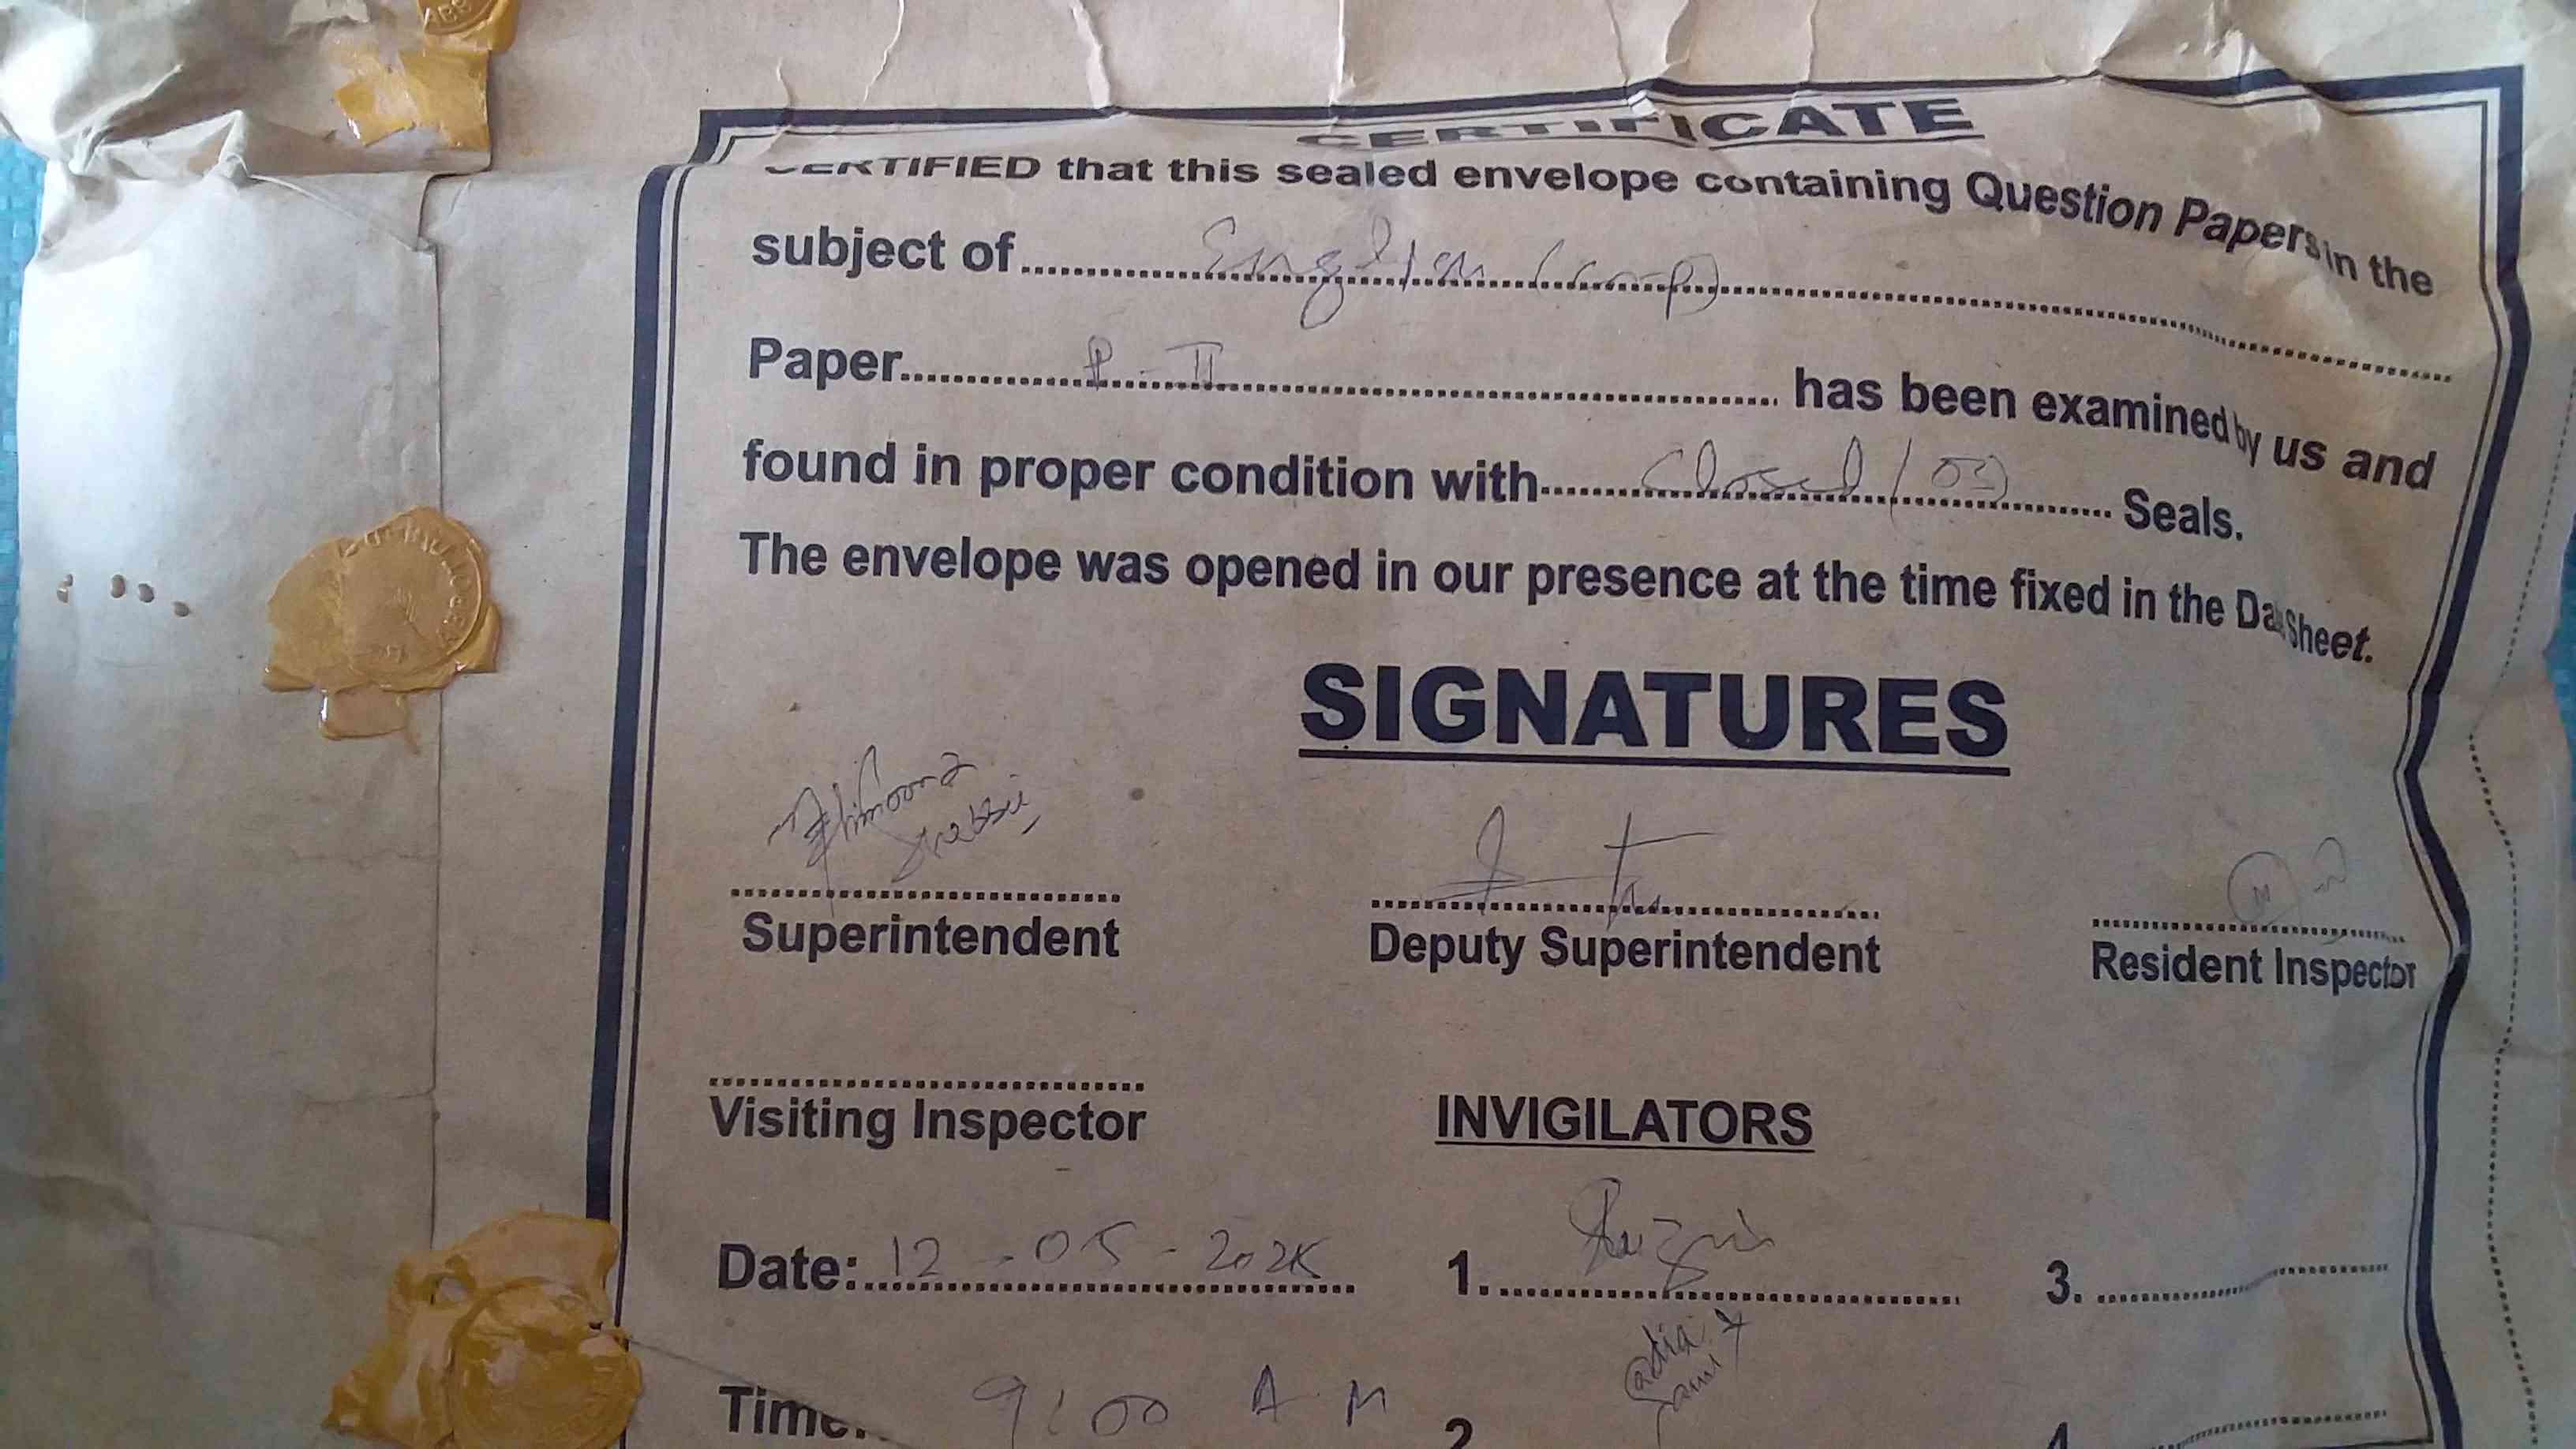 CERTIFICATE
CERTIFIED that this sealed envelope containing Question Papers in the
subject of English (comp)
Paper P-II has been examined by us and
found in proper condition with Closed (05) Seals.
The envelope was opened in our presence at the time fixed in the Date Sheet.
SIGNATURES
Superintendent
Deputy Superintendent
Resident Inspector
Visiting Inspector
INVIGILATORS
Date: 12-05-2025
1.
3.
Time: 9:00 A M
2
4